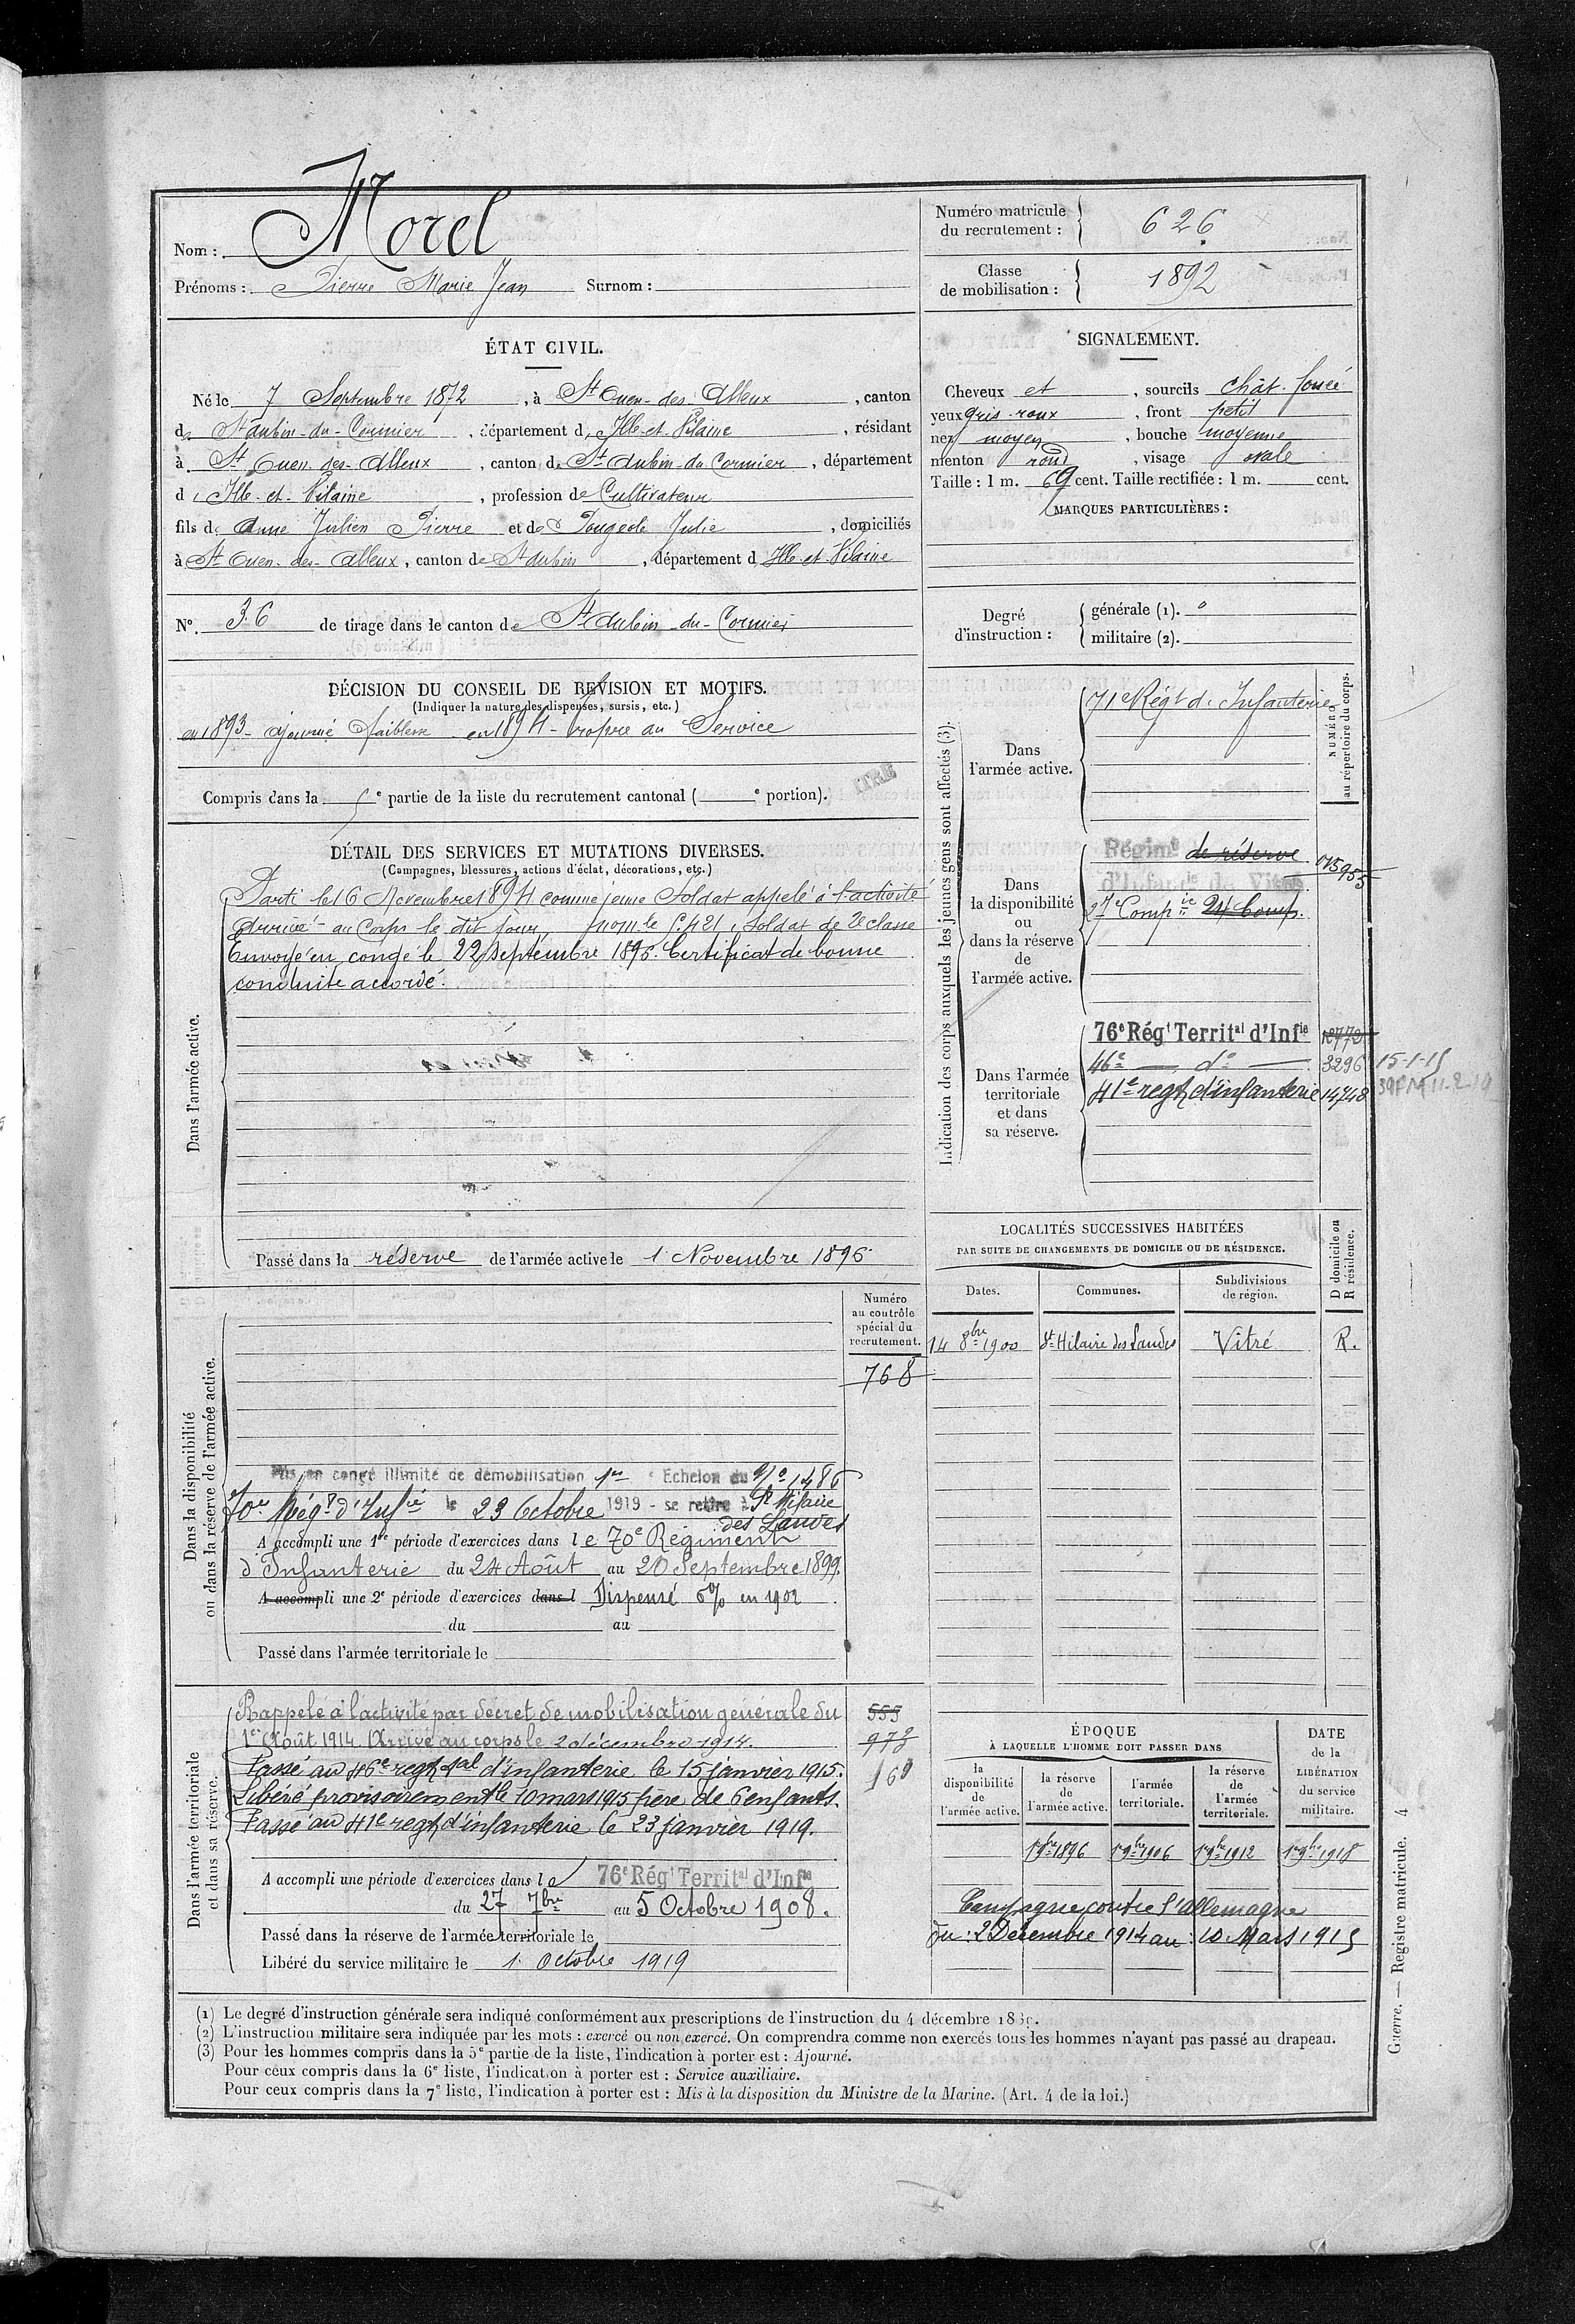 Nom : Morel
Prénoms : Pierre Marie Jean Surnom :
Numéro matricule du recrutement : 626
Classe de mobilisation : 1892
ÉTAT CIVIL.
Né le 7 Septembre 1872, à St Ouen-des-Alleux, canton
de St Aubin-du-Cormier, département d'Ille-et-Vilaine, résidant
à St Ouen-des-Alleux, canton de St Aubin-du-Cormier, département
d'Ille-et-Vilaine, profession de Cultivateur
fils de Julien Pierre et de Julie, domiciliés
à St Ouen-des-Alleux, canton de St Aubin, département d'Ille-et-Vilaine
N° 36 de tirage dans le canton de St Aubin-du-Cormier
SIGNALEMENT.
Cheveux et, sourcils chât. foncé
yeux gris-roux, front petit
nez moyen, bouche moyenne
menton rond, visage ovale
Taille : 1 m. 69 cent. Taille rectifiée : 1 m. cent.
MARQUES PARTICULIÈRES :
Degré d'instruction : générale (1). 0
militaire (2).
DÉCISION DU CONSEIL DE REVISION ET MOTIFS.
(Indiquer la nature des dispenses, sursis, etc.)
en 1893 - ajourné faiblesse en 1894 - Propre au Service
Compris dans la e partie de la liste du recrutement cantonal ( e portion).
ITRE
DÉTAIL DES SERVICES ET MUTATIONS DIVERSES.
(Campagnes, blessures, actions d'éclat, décorations, etc.)
Dans l'armée active.
Parti le 16 Novembre 1894 comme jeune Soldat appelé à l'activité
Arrivé au Corps le dit jour, soldat de 2e classe
Envoyé en congé le 22 septembre 1896. Certificat de bonne
conduite accordé.
Passé dans la réserve de l'armée active le 1 Novembre 1896
Indication des corps auxquels les jeunes gens sont affectés (3).
NUMÉRO au répertoire du corps.
Dans l'armée active.
71e Régt d'Infanterie
Dans la disponibilité ou dans la réserve de l'armée active.
Régimt de réserve
d'Infanie de Vitré
27e Compie 24 Comp.
Dans l'armée territoriale et dans sa réserve.
76e Régt Territal d'Infie
46e d° 3296 15-1-15
41e regt d'infanterie 14748
LOCALITÉS SUCCESSIVES HABITÉES
PAR SUITE DE CHANGEMENTS DE DOMICILE OU DE RÉSIDENCE.
Dates. Communes. Subdivisions de région. D domicile ou R résidence.
14 8bre 1900 St Hilaire des Landes Vitré R.
Dans la disponibilité ou dans la réserve de l'armée active.
Numéro au contrôle spécial du recrutement.
768
Mis en congé illimité de démobilisation 1er Echelon du N° 1486
70e Régt d'Infie le 23 Octobre 1919 - se retire à St Hilaire
des Landes
A accompli une 1re période d'exercices dans le 70e Régiment
d'Infanterie du 24 Août au 20 Septembre 1899.
A accompli une 2e période d'exercices dans l Dispensé 6% en 1902
du au
Passé dans l'armée territoriale le
Dans l'armée territoriale et dans sa réserve.
Rappelé à l'activité par décret de mobilisation générale du
1er Août 1914. Arrivé au corps le 2 décembre 1914.
Passé au 46e regt tal d'infanterie le 15 janvier 1915.
Libéré provisoirement le 10 mars 1915 père de 6 enfants.
Passé au 41e regt d'infanterie le 23 janvier 1919.
555
973
A accompli une période d'exercices dans le 76e Régt Territal d'Infie
du 27 7bre au 5 Octobre 1908.
Passé dans la réserve de l'armée territoriale le
Libéré du service militaire le 1 Octobre 1919
ÉPOQUE
À LAQUELLE L'HOMME DOIT PASSER DANS
la disponibilité de l'armée active. la réserve de l'armée active. l'armée territoriale. la réserve de l'armée territoriale.
DATE de la LIBÉRATION du service militaire.
1er 9bre 1896 1er 9bre 1906 1er 9bre 1912 1er 9bre 1918
Campagne contre l'Allemagne
du : 2 Décembre 1914 au : 10 Mars 1915
(1) Le degré d'instruction générale sera indiqué conformément aux prescriptions de l'instruction du 4 décembre
(2) L'instruction militaire sera indiquée par les mots : exercé ou non exercé. On comprendra comme non exercés tous les hommes n'ayant pas passé au drapeau.
(3) Pour les hommes compris dans la 5e partie de la liste, l'indication à porter est : Ajourné.
Pour ceux compris dans la 6e liste, l'indication à porter est : Service auxiliaire.
Pour ceux compris dans la 7e liste, l'indication à porter est : Mis à la disposition du Ministre de la Marine. (Art. 4 de la loi.)
Guerre. — Registre matricule. 4